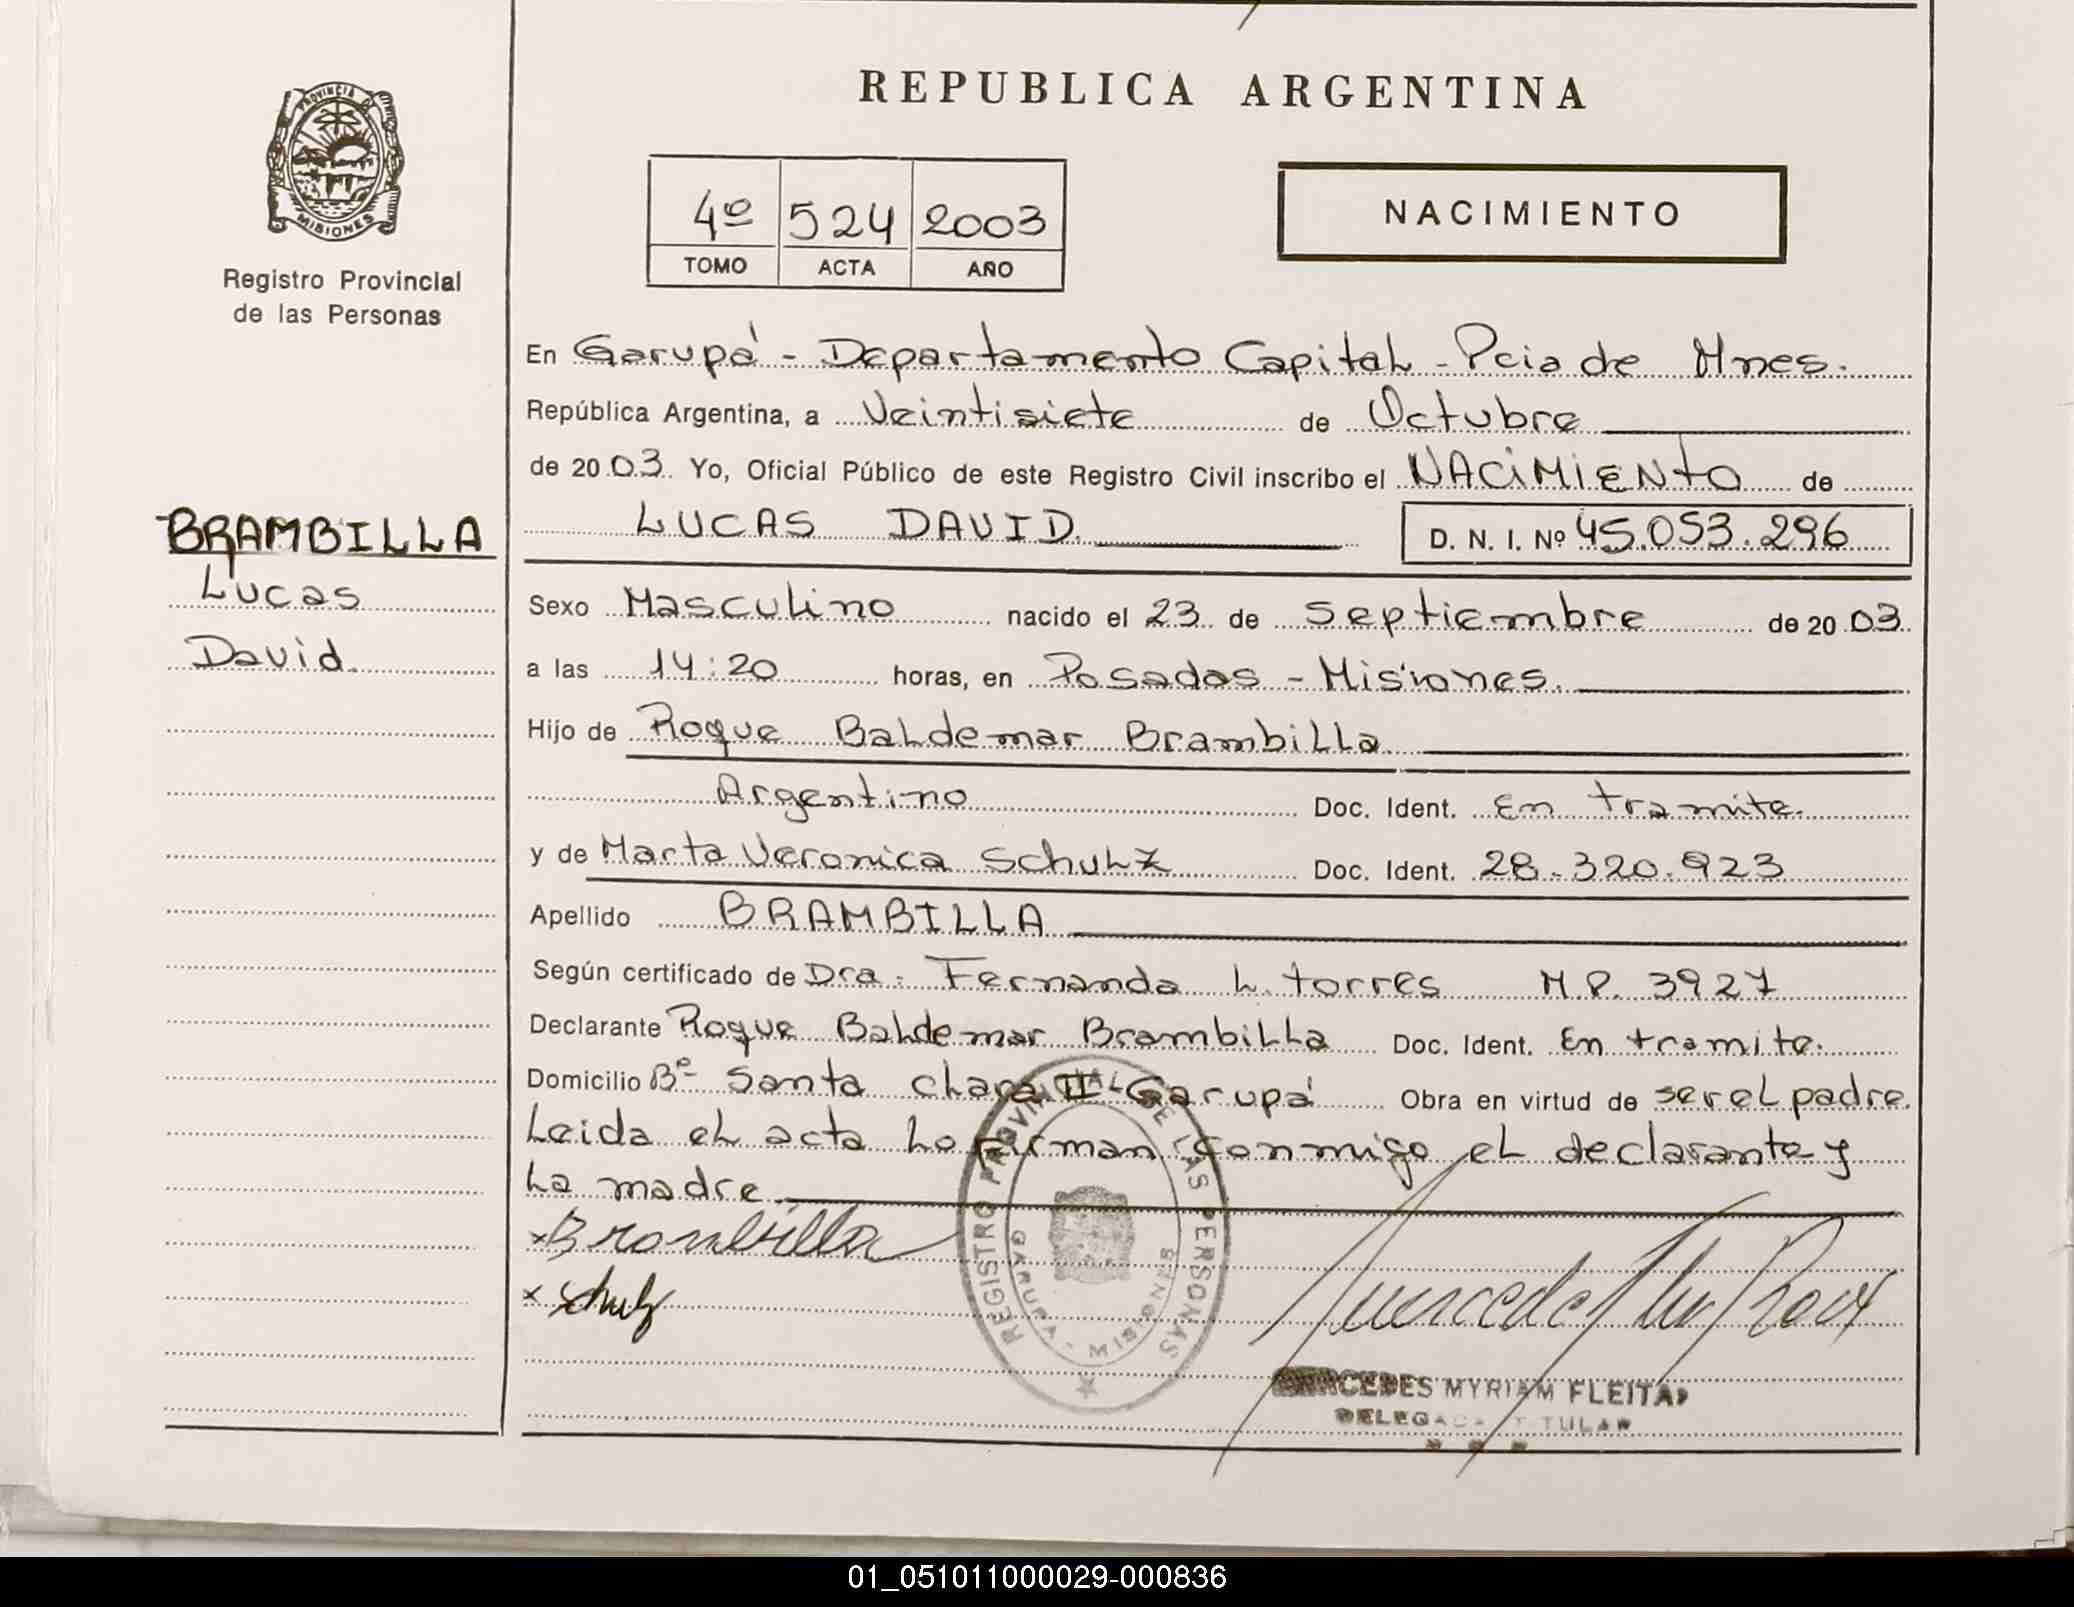 REPUBLICA ARGENTINA
PROVINCIA D MISIONES
Registro Provincial
de las Personas
4º 524 2003
TOMO ACTA AÑO
NACIMIENTO
En Garupá - Departamento Capital - Pcia de Mnes.
República Argentina, a Veintisiete de Octubre
de 2003. Yo, Oficial Público de este Registro Civil inscribo el NACIMIENTO de
LUCAS DAVID. D. N. I. Nº 45.053.296
BRAMBILLA
Lucas
David.
Sexo Masculino nacido el 23 de Septiembre de 2003.
a las 14:20 horas, en Posadas - Misiones.
Hijo de Roque Baldemar Brambilla
Argentino Doc. Ident. En tramite.
y de Marta Veronica Schulz Doc. Ident. 28.320.923
Apellido BRAMBILLA
Según certificado de Dra. Fernanda L. torres M.P. 3927
Declarante Roque Baldemar Brambilla Doc. Ident. En tramite.
Domicilio Bº Santa Clara II Garupá Obra en virtud de ser el padre.
Leida el acta la firman conmigo el declarante y
la madre
x Brambilla
x Schulz
REGISTRO PROVINCIAL DE LAS PERSONAS
GARUPA - MISIONES
MERCEDES MYRIAM FLEITAS
DELEGADA TITULAR
01_051011000029-000836